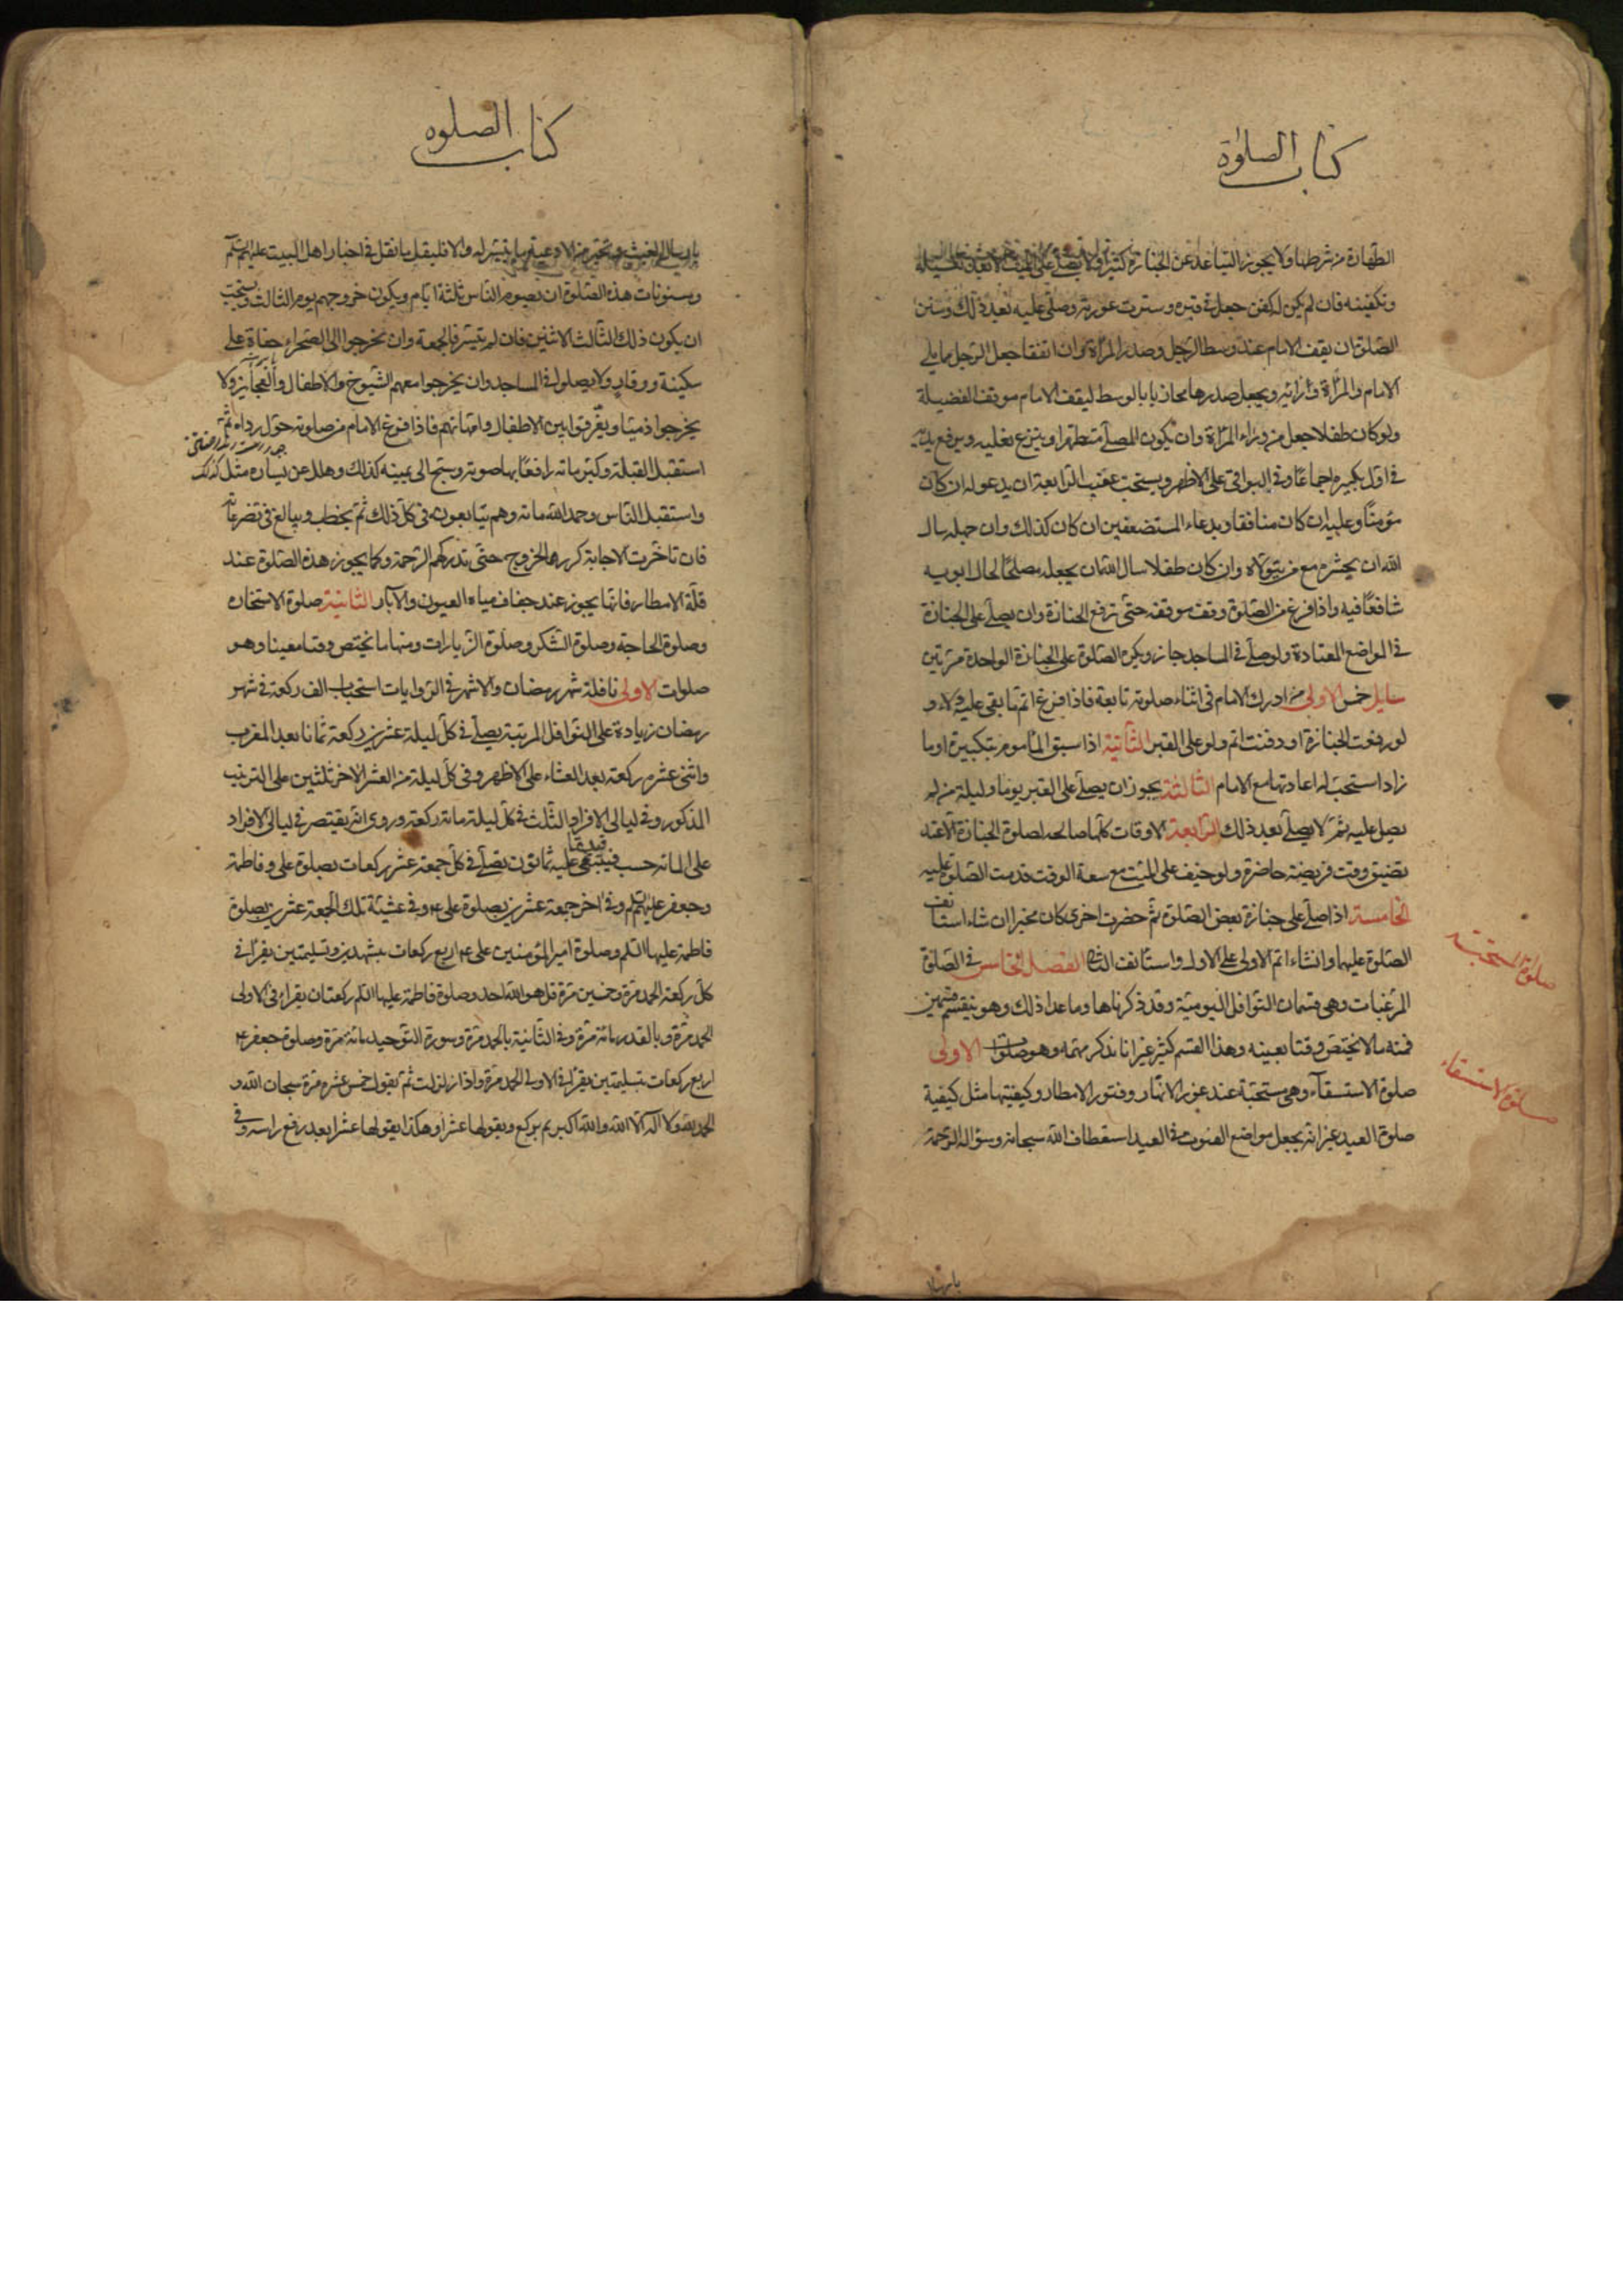 كتاب الصلوة
الطهارة من شرطها ولا يجوز التباعد عن الجنازة كثيرا ولا يصلى على الميت الا بعد تغسيله
وتكفينه فان لم يكن له كفن جعل فى قبره وسترت عورته وصلى عليه بعد ذلك وسنن
الصلوة ان يقف الامام عند وسط الرجل وصدر المراة وان اتفقا جعل الرجل مما يلى
الامام والمراة ورائه ويجعل صدرها محاذيا بالوسط ليقف الامام موقف الفضيلة
ولو كان طفلا جعل من وراء المراة وان يكون المصلى متطهرا وينزع نعليه ويرفع يديه
فى اول تكبيره اجماعا وفى البواقى على الاظهر ويستحب عقيب الرابعة ان يدعو له ان كان
مؤمنا وعليه ان كان منافقا وبدعاء المستضعفين ان كان كذلك وان جهله سال
الله ان يحشره مع من يتولاه وان كان طفلا سال الله ان يجعله مصلحا لحال ابويه
شافعا فيه واذا فرغ من الصلوة وقف موقفه حتى ترفع الجنازة وان يصلى على الجنازة
فى المواضع المعتادة ولو صلى فى المساجد جاز ويكره الصلوة على الجنازة الواحدة مرتين
مسايل خمس الاولى من ادرك الامام فى اثناء صلوته تابعه فاذا فرغ اتم ما بقى عليه ولاء و
لو رفعت الجنازة او دفنت اتم ولو على القبر الثانية اذا سبق الماموم بتكبيرة او ما
زاد استحب له اعادتها مع الامام الثالثة يجوز ان يصلى على القبر يوما وليلة من لم
يصل عليه ثم لا يصلى بعد ذلك الرابعة الاوقات كلها صالحه لصلوة الجنازة الا عند
تضيق وقت فريضة حاضرة ولو خيف على الميت مع سعة الوقت قدمت الصلوة عليه
الخامسة اذا صلى على جنازة بعض الصلوة ثم حضرت اخرى كان مخيرا ان شاء استانف
الصلوة عليهما وانشاء اتم الاولى على الاول واستانف الثانى الفصل الخامس فى الصلوة
المرغبات وهى قسمان النوافل اليومية وقد ذكرناها وما عدا ذلك وهو ينقسم قسمين
فمنه ما لا يختص وقتا بعينه وهذا القسم كثير غير انا نذكر مهمه وهو صلوات الاولى
صلوة الاستسقاء وهى مستحبة عند غور الانهار وفتور الامطار وكيفيتها مثل كيفية
صلوة العيد غير انه يجعل مواضع القنوت فى العيد استعطاف الله سبحانه وسؤاله الرحمة
صلوة المستحبة
صلوة الاستسقاء
كتاب الصلوه
بارسال الغيث ويتخير من الادعية ما يتيسر له والا فليقل ما نقل فى اخبار اهل البيت عليهم السلم
ومسنونات هذه الصلوة ان يصوم الناس ثلثة ايام ويكون خروجهم يوم الثالث ويستحب
ان يكون ذلك الثالث الاثنين فان لم يتيسر فالجمعة وان يخرجوا الى الصحراء حفاة على
سكينة ووقار ولا يصلوا فى المساجد وان يخرجوا معهم الشيوخ والاطفال والعجايز ولا
يخرجوا ذميا ويفرقوا بين الاطفال وامهاتهم فاذا فرغ الامام من صلوته حول رداءه ثم
استقبل القبلة وكبر مائه رافعا بها صوته وسبح الى يمينه كذلك وهلل عن يساره مثل ذلك
واستقبل الناس وحمد الله مائه وهم يتابعونه فى كل ذلك ثم يخطب ويبالغ فى تضرعاته
فان تاخرت الاجابة كرروا الخروج حتى تدركهم الرحمة وكما يجوز هذه الصلوة عند
قلة الامطار فانها يجوز عند جفاف مياه العيون والآبار الثانية صلوة الاستخاره
وصلوة الحاجة وصلوة الشكر وصلوة الزيارات ومنها ما يختص وقتا معينا وهو
صلوات الاولى نافلة شهر رمضان والاشهر فى الروايات استحباب الف ركعة فى شهر
رمضان زيادة على النوافل المرتبة يصلى فى كل ليلة عشرين ركعة ثمانا بعد المغرب
واثنى عشره ركعة بعد العشاء على الاظهر وفى كل ليلة من العشر الاخر ثلثين على الترتيب
المذكور وفى ليالى الافراد الثلث فى كل ليلة مائة ركعة وروى انه يقتصر فى ليالى الافراد
على المائه حسب فيبقى عليه ثمانون يصلى فى كل جمعة عشر ركعات بصلوة على وفاطمة
وجعفر عليهم السلم وفى اخر جمعة عشرين بصلوة على ع وفى عشية تلك الجمعة عشرين بصلوة
فاطمة عليها السلم وصلوة امير المؤمنين على ع اربع ركعات بتشهدين وتسليمتين يقرا فى
كل ركعة الحمد مرة وخمسين مرة قل هو الله احد وصلوة فاطمة عليها السلم ركعتان يقراء فى الاولى
الحمد مرة وبالقدر مائة مرة وفى الثانية بالحمد مرة وسورة التوحيد مائة مرة وصلوة جعفر ع
اربع ركعات بتسليمتين يقرا فى الاولى الحمد مرة واذا زلزلت ثم يقول خمس عشره مرة سبحان الله و
الحمد لله ولا اله الا الله والله اكبر ثم يركع ويقولها عشرا وهكذا يقولها عشرا بعد رفع راسه وفى